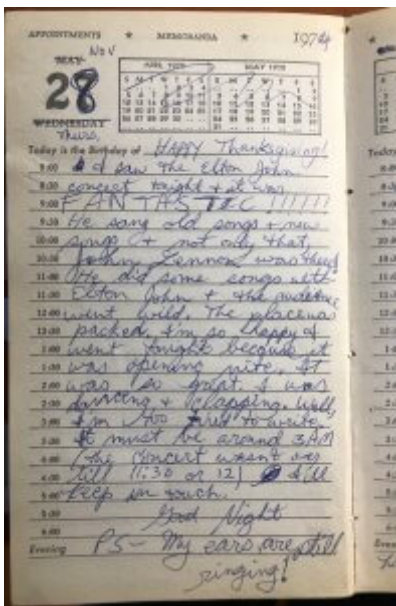 APPOINTMENTS ★ MEMORANDA ★ 1974
MAY Nov
28
WEDNESDAY
Thurs.
Today is the Birthday of HAPPY Thanksgiving!
I saw the Elton John
concert tonight & it was
FANTASTIC!!!!!!!
He sang old songs & new
songs & not only that,
Johnny Lennon was there!
He did some songs with
Elton John & the audience
went wild. The place was
packed. I'm so happy I
went tonight because it
was opening nite. It
was so great. I was
dancing & clapping. Well,
I'm too tired to write.
It must be around 3AM
(the concert wasn't over
till 11:30 or 12) I'll
keep in touch.
Good Night
Evening PS- My ears are still
ringing!